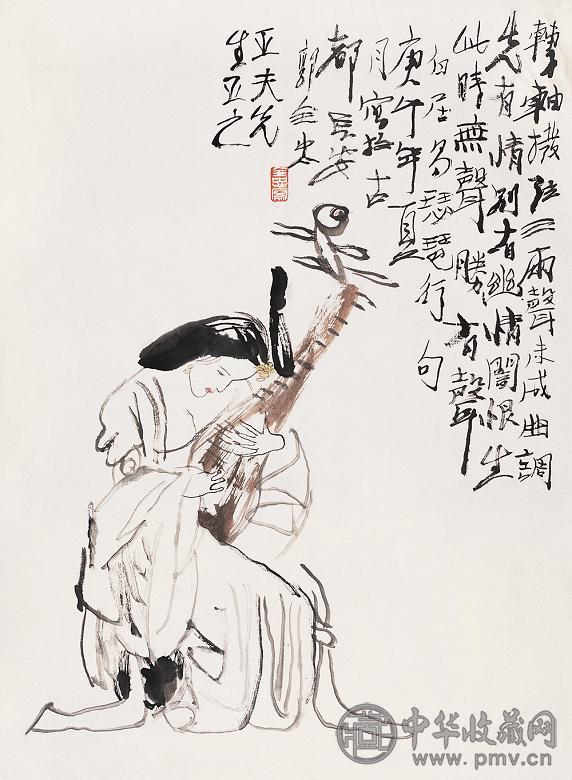 轉軸撥弦三兩聲未成曲調
先有情别有幽情闇恨生
此時無聲勝有聲
白居易琵琶行句
庚午年夏
月寫於古
都長安
郭全忠
亚夫先
生正之
中华收藏网
www.pmv.cn